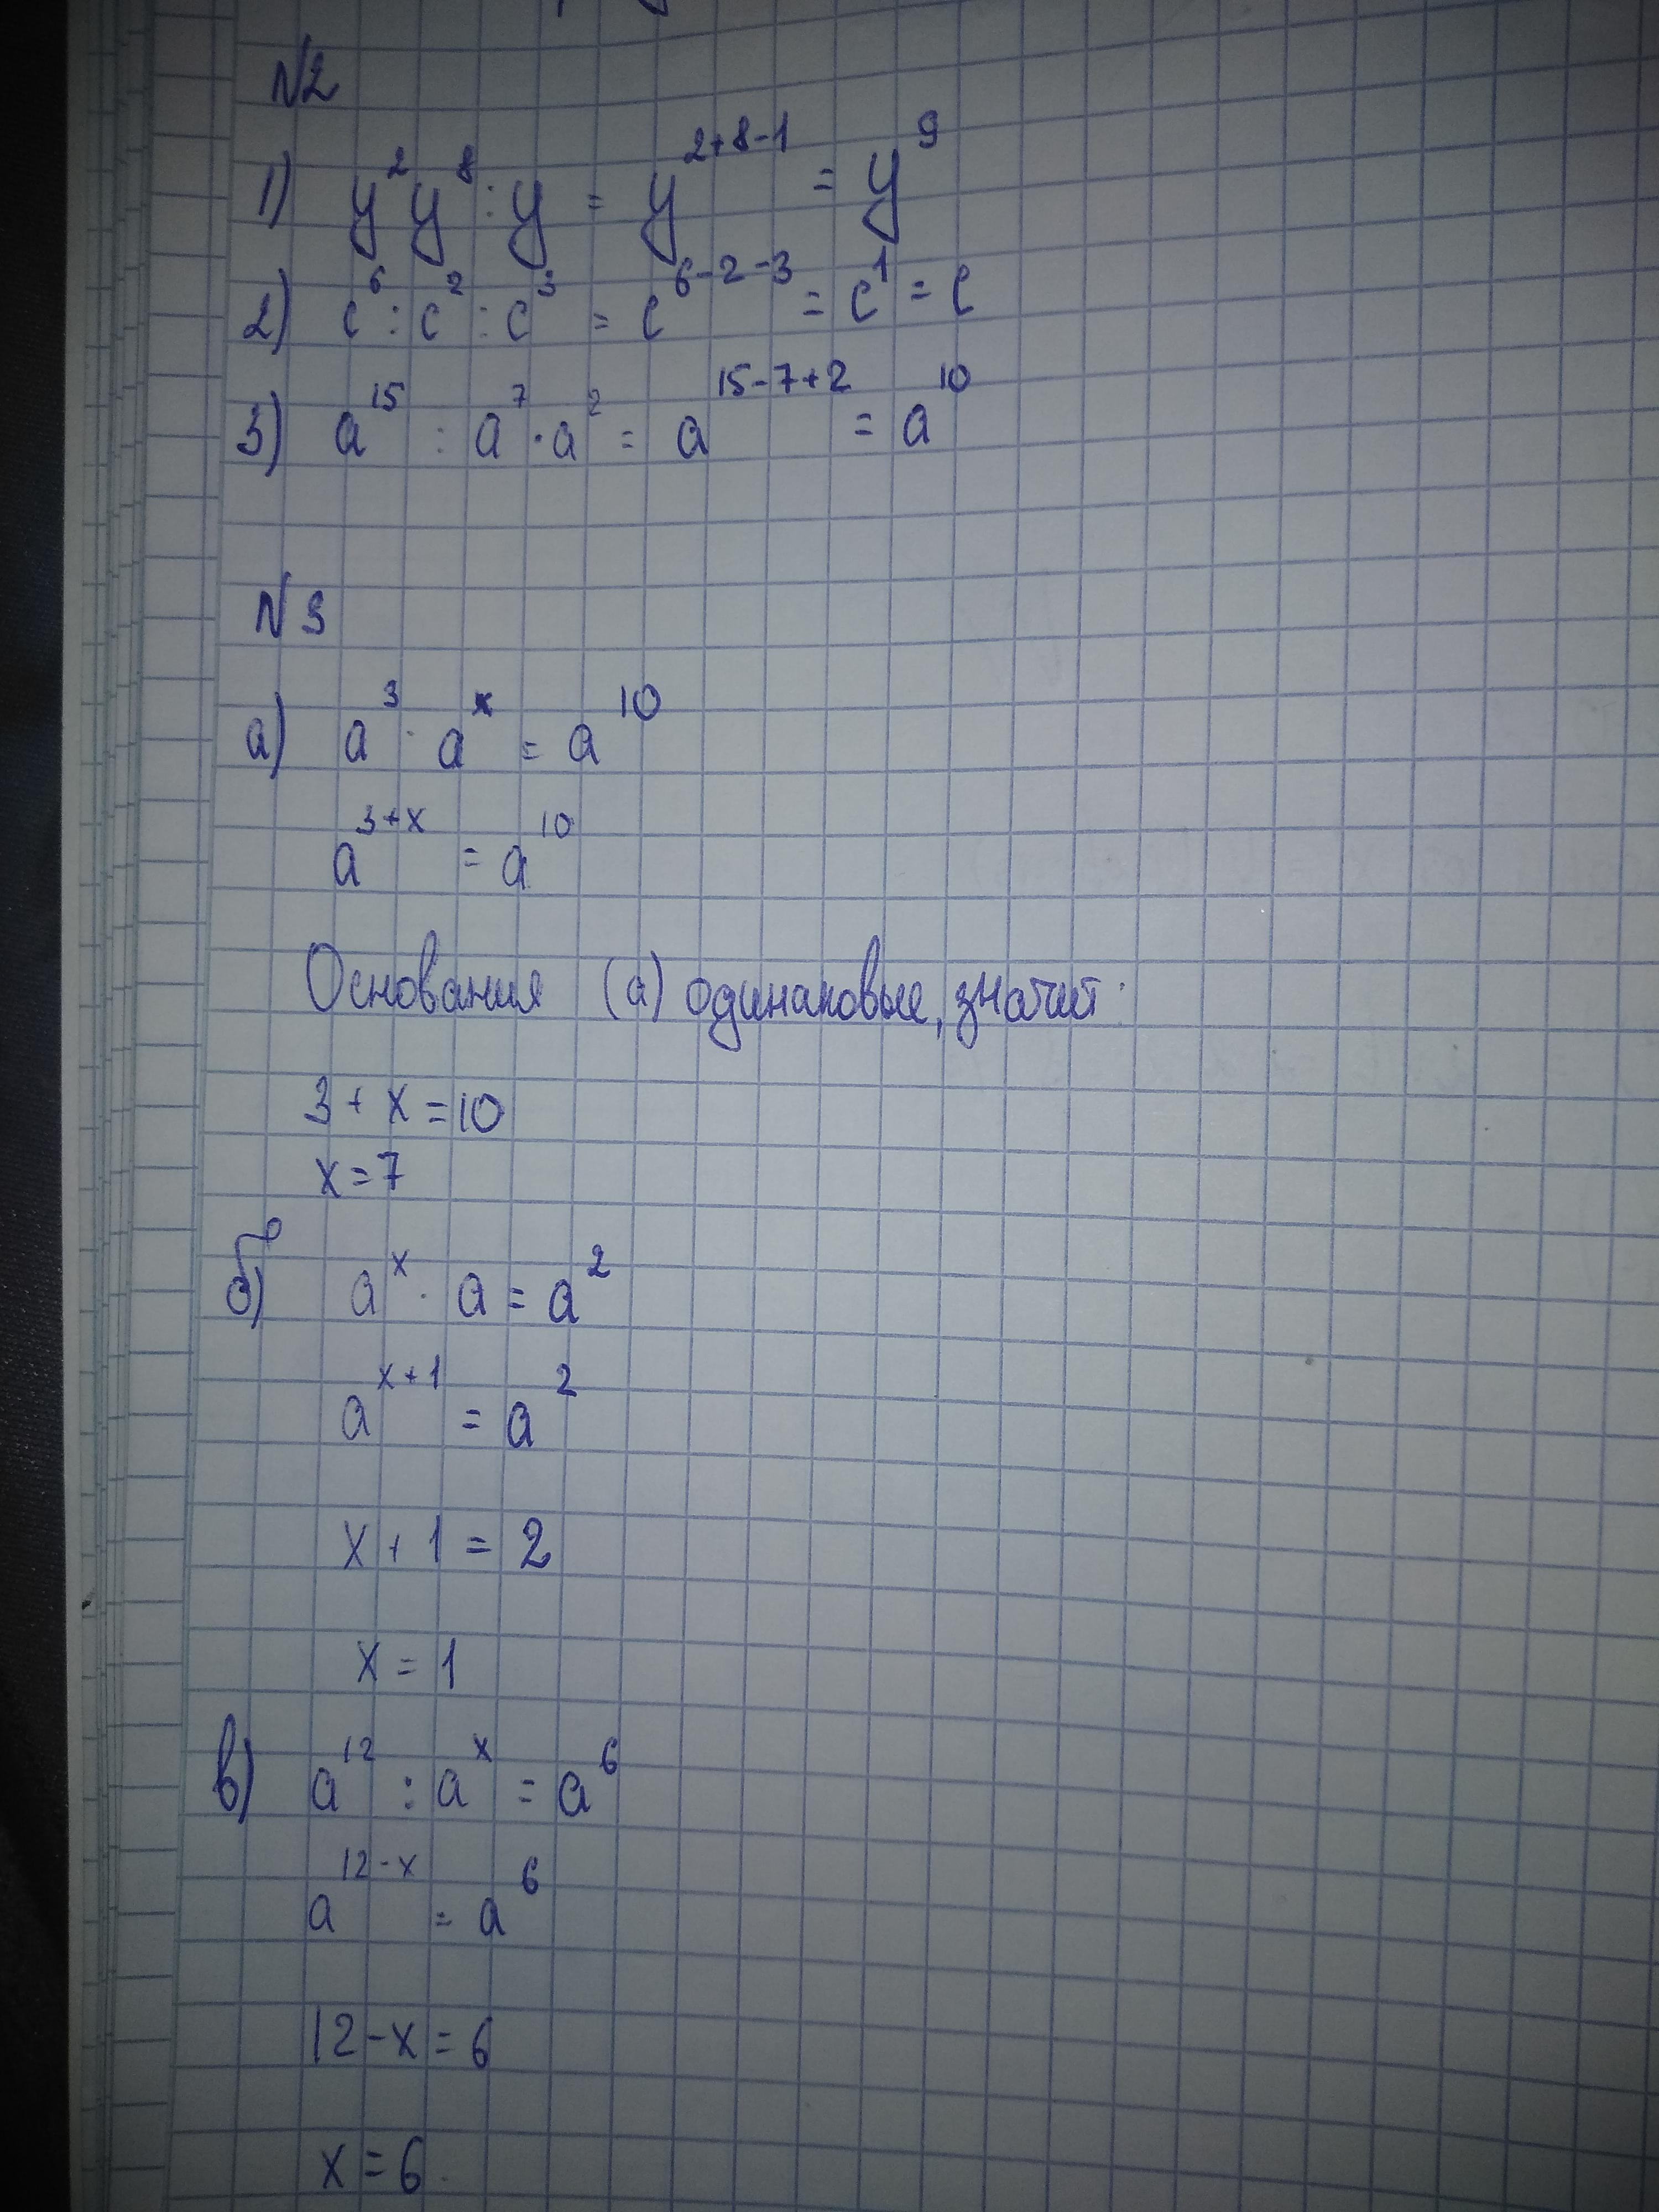 №2
1) y²y⁸ : y = y²⁺⁸⁻¹ = y⁹
2) c⁶ : c² : c³ = c⁶⁻²⁻³ = c¹ = c
3) a¹⁵ : a⁷ · a² = a¹⁵⁻⁷⁺² = a¹⁰
№3
а) a³ · aˣ = a¹⁰
a³⁺ˣ = a¹⁰
Основания (а) одинаковые, значит:
3 + x = 10
x = 7
б) aˣ · a = a²
aˣ⁺¹ = a²
x + 1 = 2
x = 1
в) a¹² : aˣ = a⁶
a¹²⁻ˣ = a⁶
12 - x = 6
x = 6